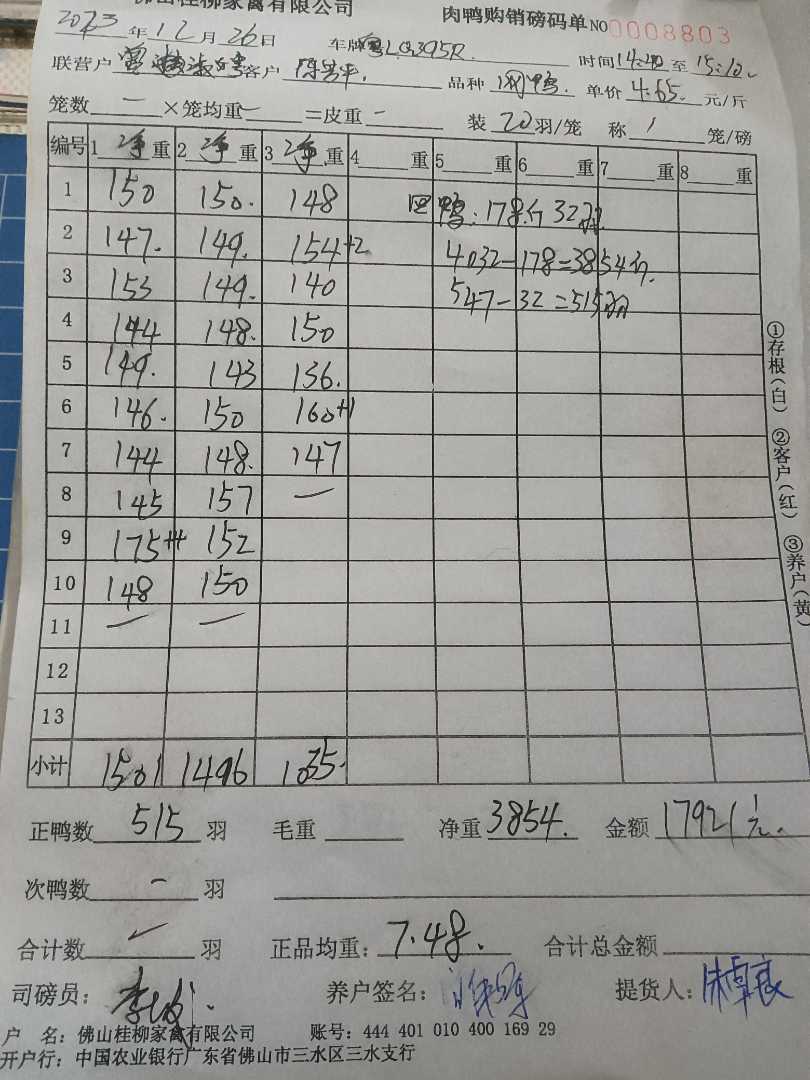 佛山桂柳家禽有限公司 肉鸭购销磅码单 NO 0008803
2023年12月26日 车牌 粤LG395R 时间 14:40 至 15:10
联营户 客户 陈芳平 品种 肉鸭 单价 4.65 元/斤
笼数 一 ×笼均重 一 =皮重 一 装 20 羽/笼 称 1 笼/磅
编号 1 净 重 2 净 重 3 净 重 4 重 5 重 6 重 7 重 8 重
1 150 150. 148 回鸭:178斤32羽
2 147. 149. 154+2 4032-178=3854斤.
3 153 149. 140 547-32=515羽
4 144 148. 150
5 149. 143 136.
6 146. 150 160+1
7 144 148. 147
8 145 157 一
9 175+4 152
10 148 150
11 一 一
12
13
小计 1501 1496 1035.
正鸭数 515 羽 毛重 净重 3854. 金额 17921.1元.
次鸭数 一 羽
合计数 ✓ 羽 正品均重: 7.48. 合计总金额
司磅员: 养户签名: 提货人: 朱卓良
户 名: 佛山桂柳家禽有限公司 账号: 444 401 010 400 169 29
开户行: 中国农业银行广东省佛山市三水区三水支行
①存根(白) ②客户(红) ③养户(黄)